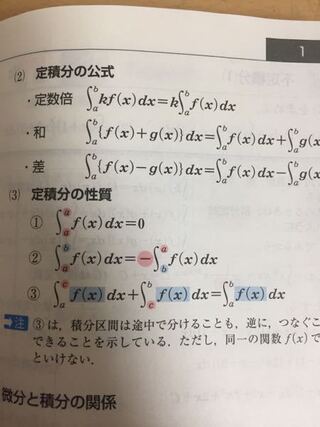 1
(2) 定積分の公式
・定数倍 ∫_a^b kf(x)dx=k∫_a^b f(x)dx
・和 ∫_a^b {f(x)+g(x)}dx=∫_a^b f(x)dx+∫_a^b g(x
・差 ∫_a^b {f(x)-g(x)}dx=∫_a^b f(x)dx-∫_a^b g(x
(3) 定積分の性質
① ∫_a^a f(x)dx=0
② ∫_a^b f(x)dx=-∫_b^a f(x)dx
③ ∫_a^c f(x)dx+∫_c^b f(x)dx=∫_a^b f(x)dx
注 ③は,積分区間は途中で分けることも,逆に,つなぐこ
できることを示している。ただし,同一の関数f(x)で
といけない。
微分と積分の関係